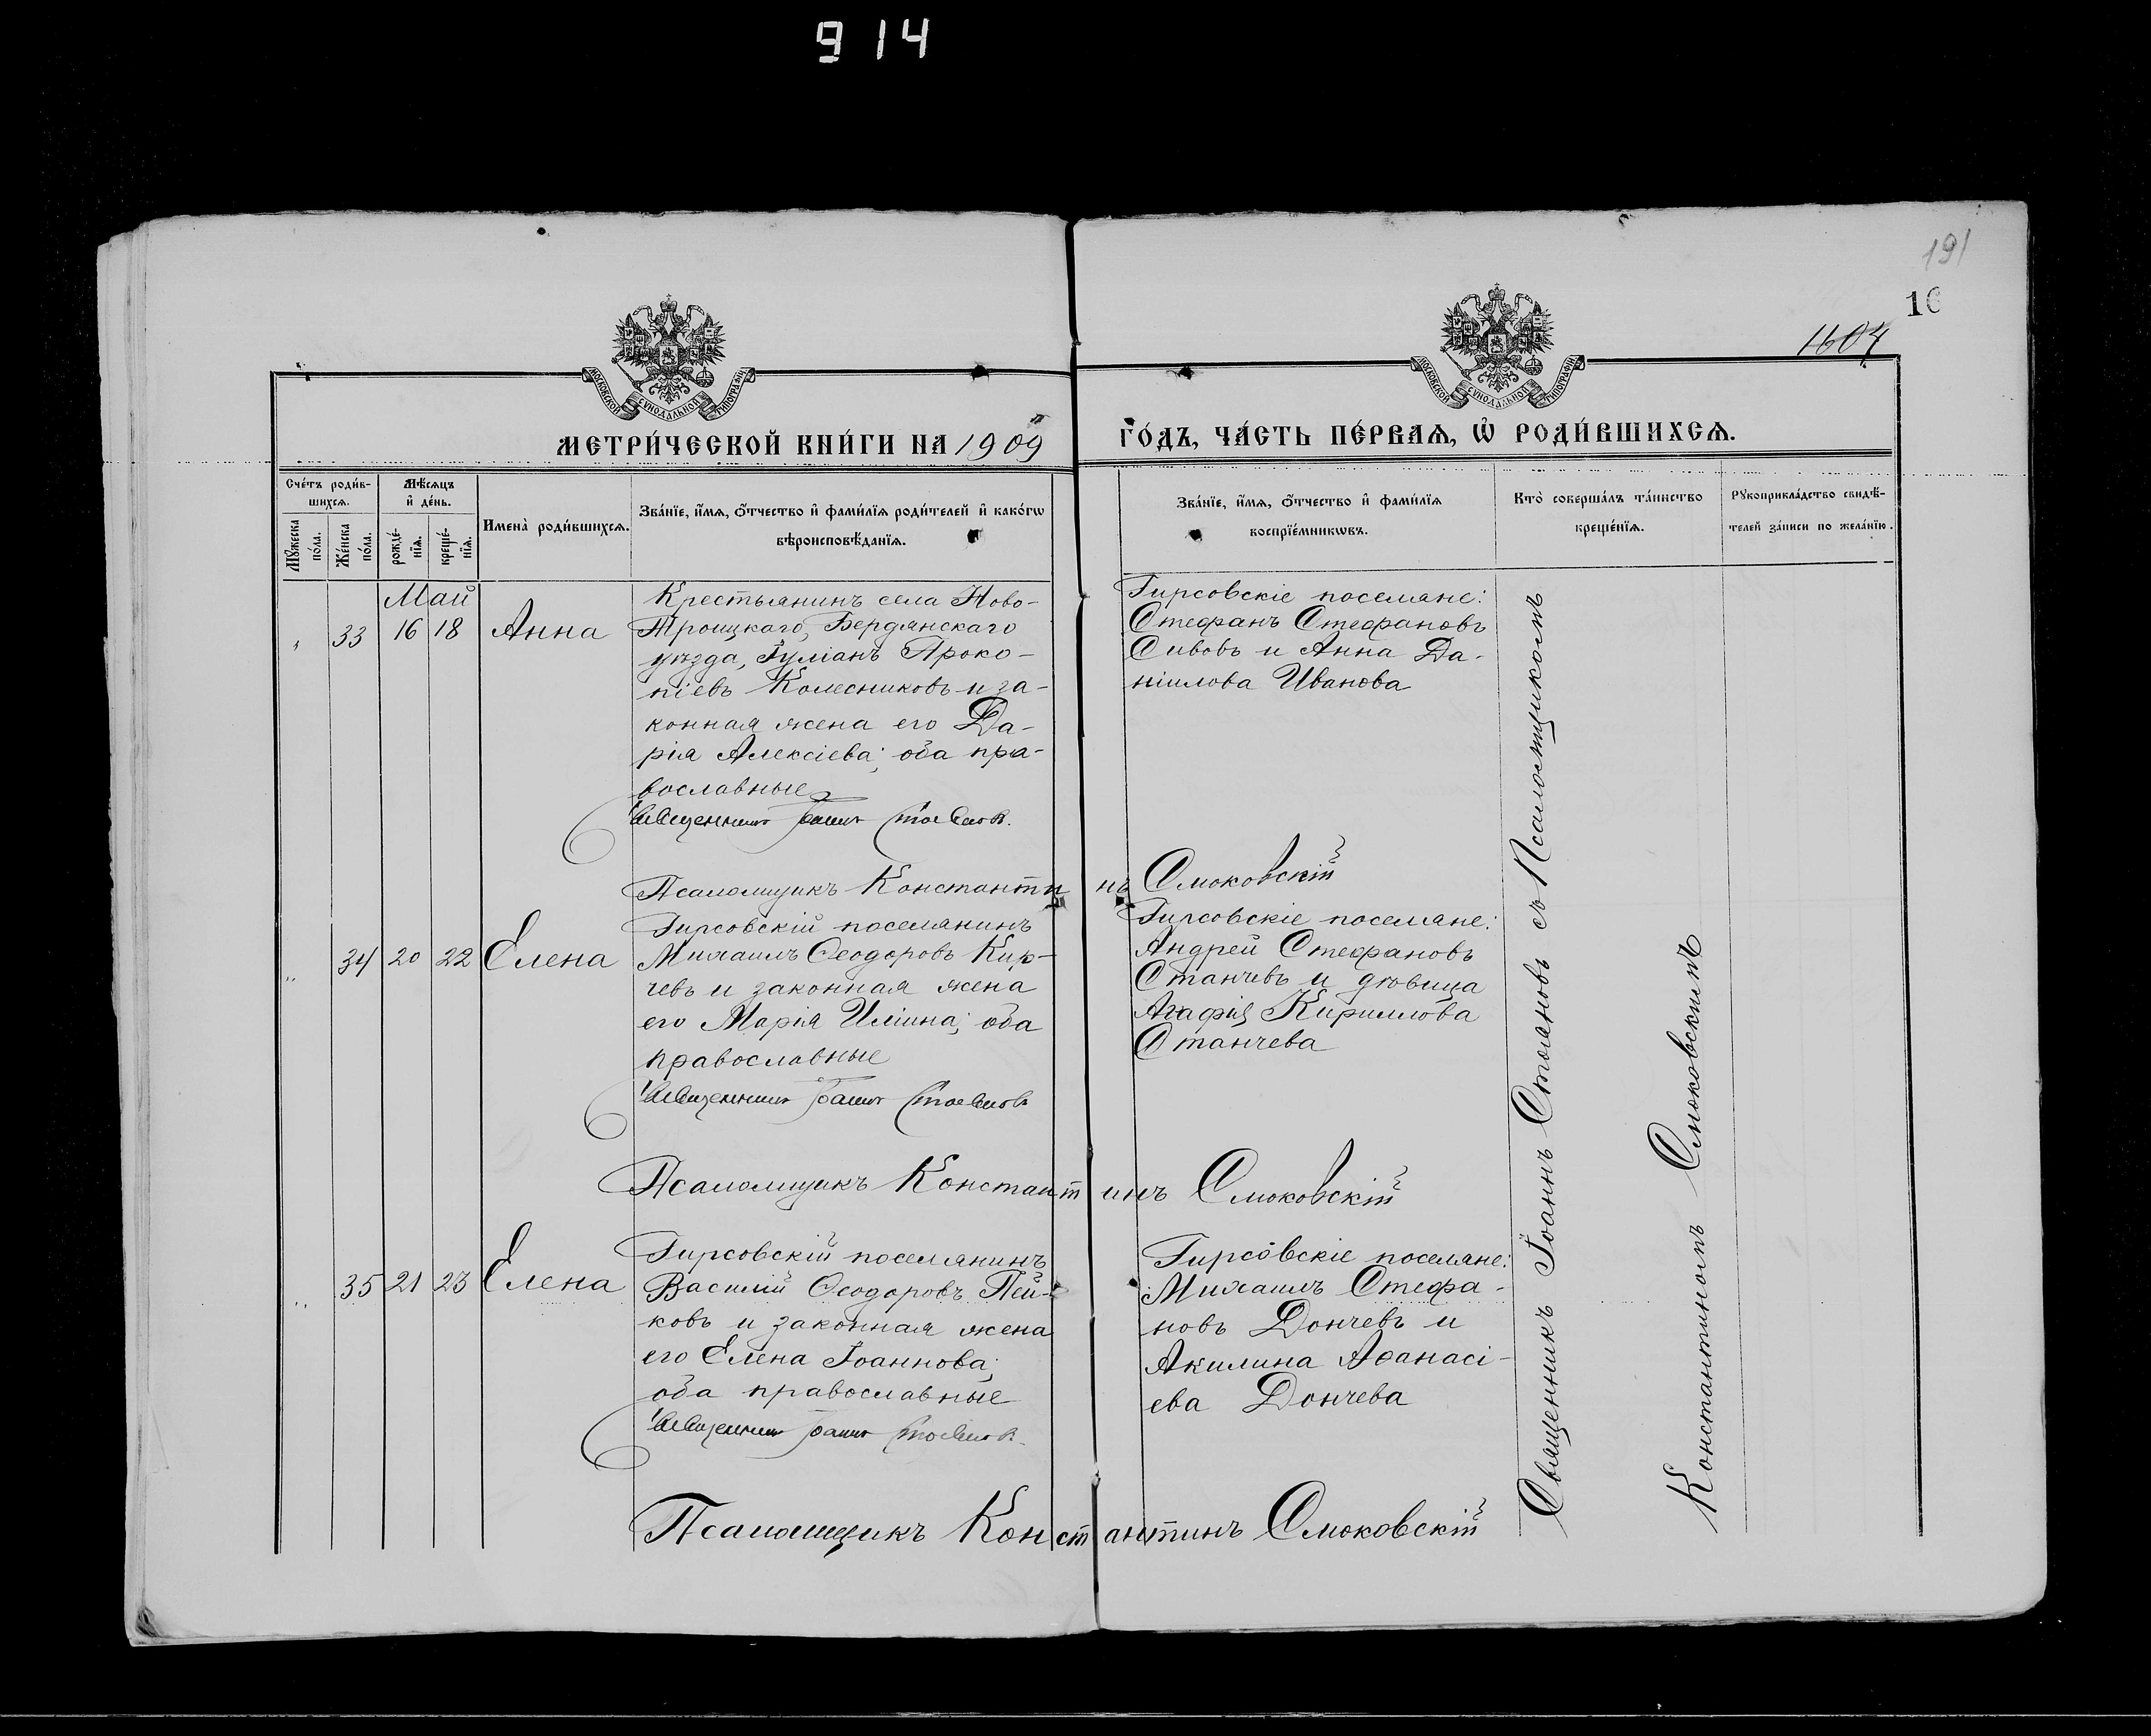 914
191
16
1604
МОСКОВСКОЙ СѴНОДАЛЬНОЙ ТИПОГРАФІИ
МОСКОВСКОЙ СѴНОДАЛЬНОЙ ТИПОГРАФІИ
МЕТРИ́ЧЕСКОЙ КНИ́ГИ НА 1909
ГО́ДЪ, ЧА́СТЬ ПЕ́РВАЯ, Ѡ҆ РОДИ́ВШИХСЯ.
Сче́тъ роди́в-
шихся.
Мꙋ́жеска по́ла.
Же́нска по́ла.
Мѣ́сяцъ
и҆ де́нь.
рожде́-
нїя.
креще́-
нїя.
Имена̀ роди́вшихся.
Зва́нїе, и҆́мя, ѻ҆́тчество и҆ фами́лїя роди́телей и҆ како́гѡ
вѣроисповѣ́данїя.
Зва́нїе, и҆́мя, ѻ҆́тчество и҆ фами́лїя
воспрїе́мникѡвъ.
Кто̀ соверша́лъ та́инство
креще́нїя.
Рꙋкоприкла́дство свидѣ́-
телей за́писи по жела́нїю.
Май
" 33 16 18 Анна
Крестьянинъ села Ново-
Троицкаго, Бердянскаго
уѣзда, Іуліанъ Проко-
піевъ Колесниковъ и за-
конная жена его Да-
рія Алексіева; оба пра-
вославные
Священникъ Іоаннъ Стояновъ.
Гирсовскіе поселяне:
Стефанъ Стефановъ
Сивовъ и Анна Да-
ніилова Иванова
Псаломщикъ Константинъ Смоковскій
" 34 20 22 Елена
Гирсовскій поселянинъ
Михаилъ Ѳеодоровъ Кир-
чевъ и законная жена
его Марія Иліина; оба
православные
Священникъ Іоаннъ Стояновъ
Гирсовскіе поселяне:
Андрей Стефановъ
Станчевъ и дѣвица
Агафія Кириллова
Станчева
Псаломщикъ Константинъ Смоковскій
" 35 21 23 Елена
Гирсовскій поселянинъ
Василій Ѳеодоровъ Пей-
ковъ и законная жена
его Елена Іоаннова;
оба православные
Священникъ Іоаннъ Стояновъ.
Гирсовскіе поселяне:
Михаилъ Стефа-
новъ Дончевъ и
Акилина Аѳанасі-
ева Дончева
Псаломщикъ Константинъ Смоковскій
Священникъ Іоаннъ Стояновъ съ Псаломщикомъ
Константиномъ Смоковскимъ